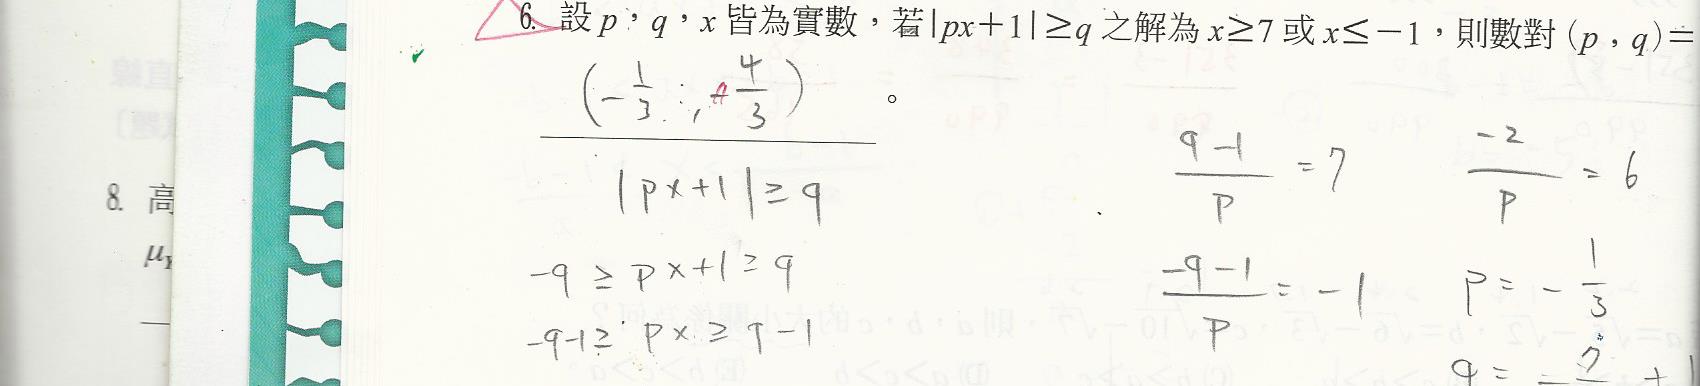 6. 設 p,q,x 皆為實數,若|px+1|≥q 之解為 x≥7 或 x≤-1,則數對 (p,q)=
(-1/3, 4/3)。
|px+1|≥q
-q ≥ px+1 ≥ q
-q-1 ≥ px ≥ q-1
(q-1)/p = 7
(-q-1)/p = -1
-2/p = 6
p = -1/3
q =
8. 高
μY